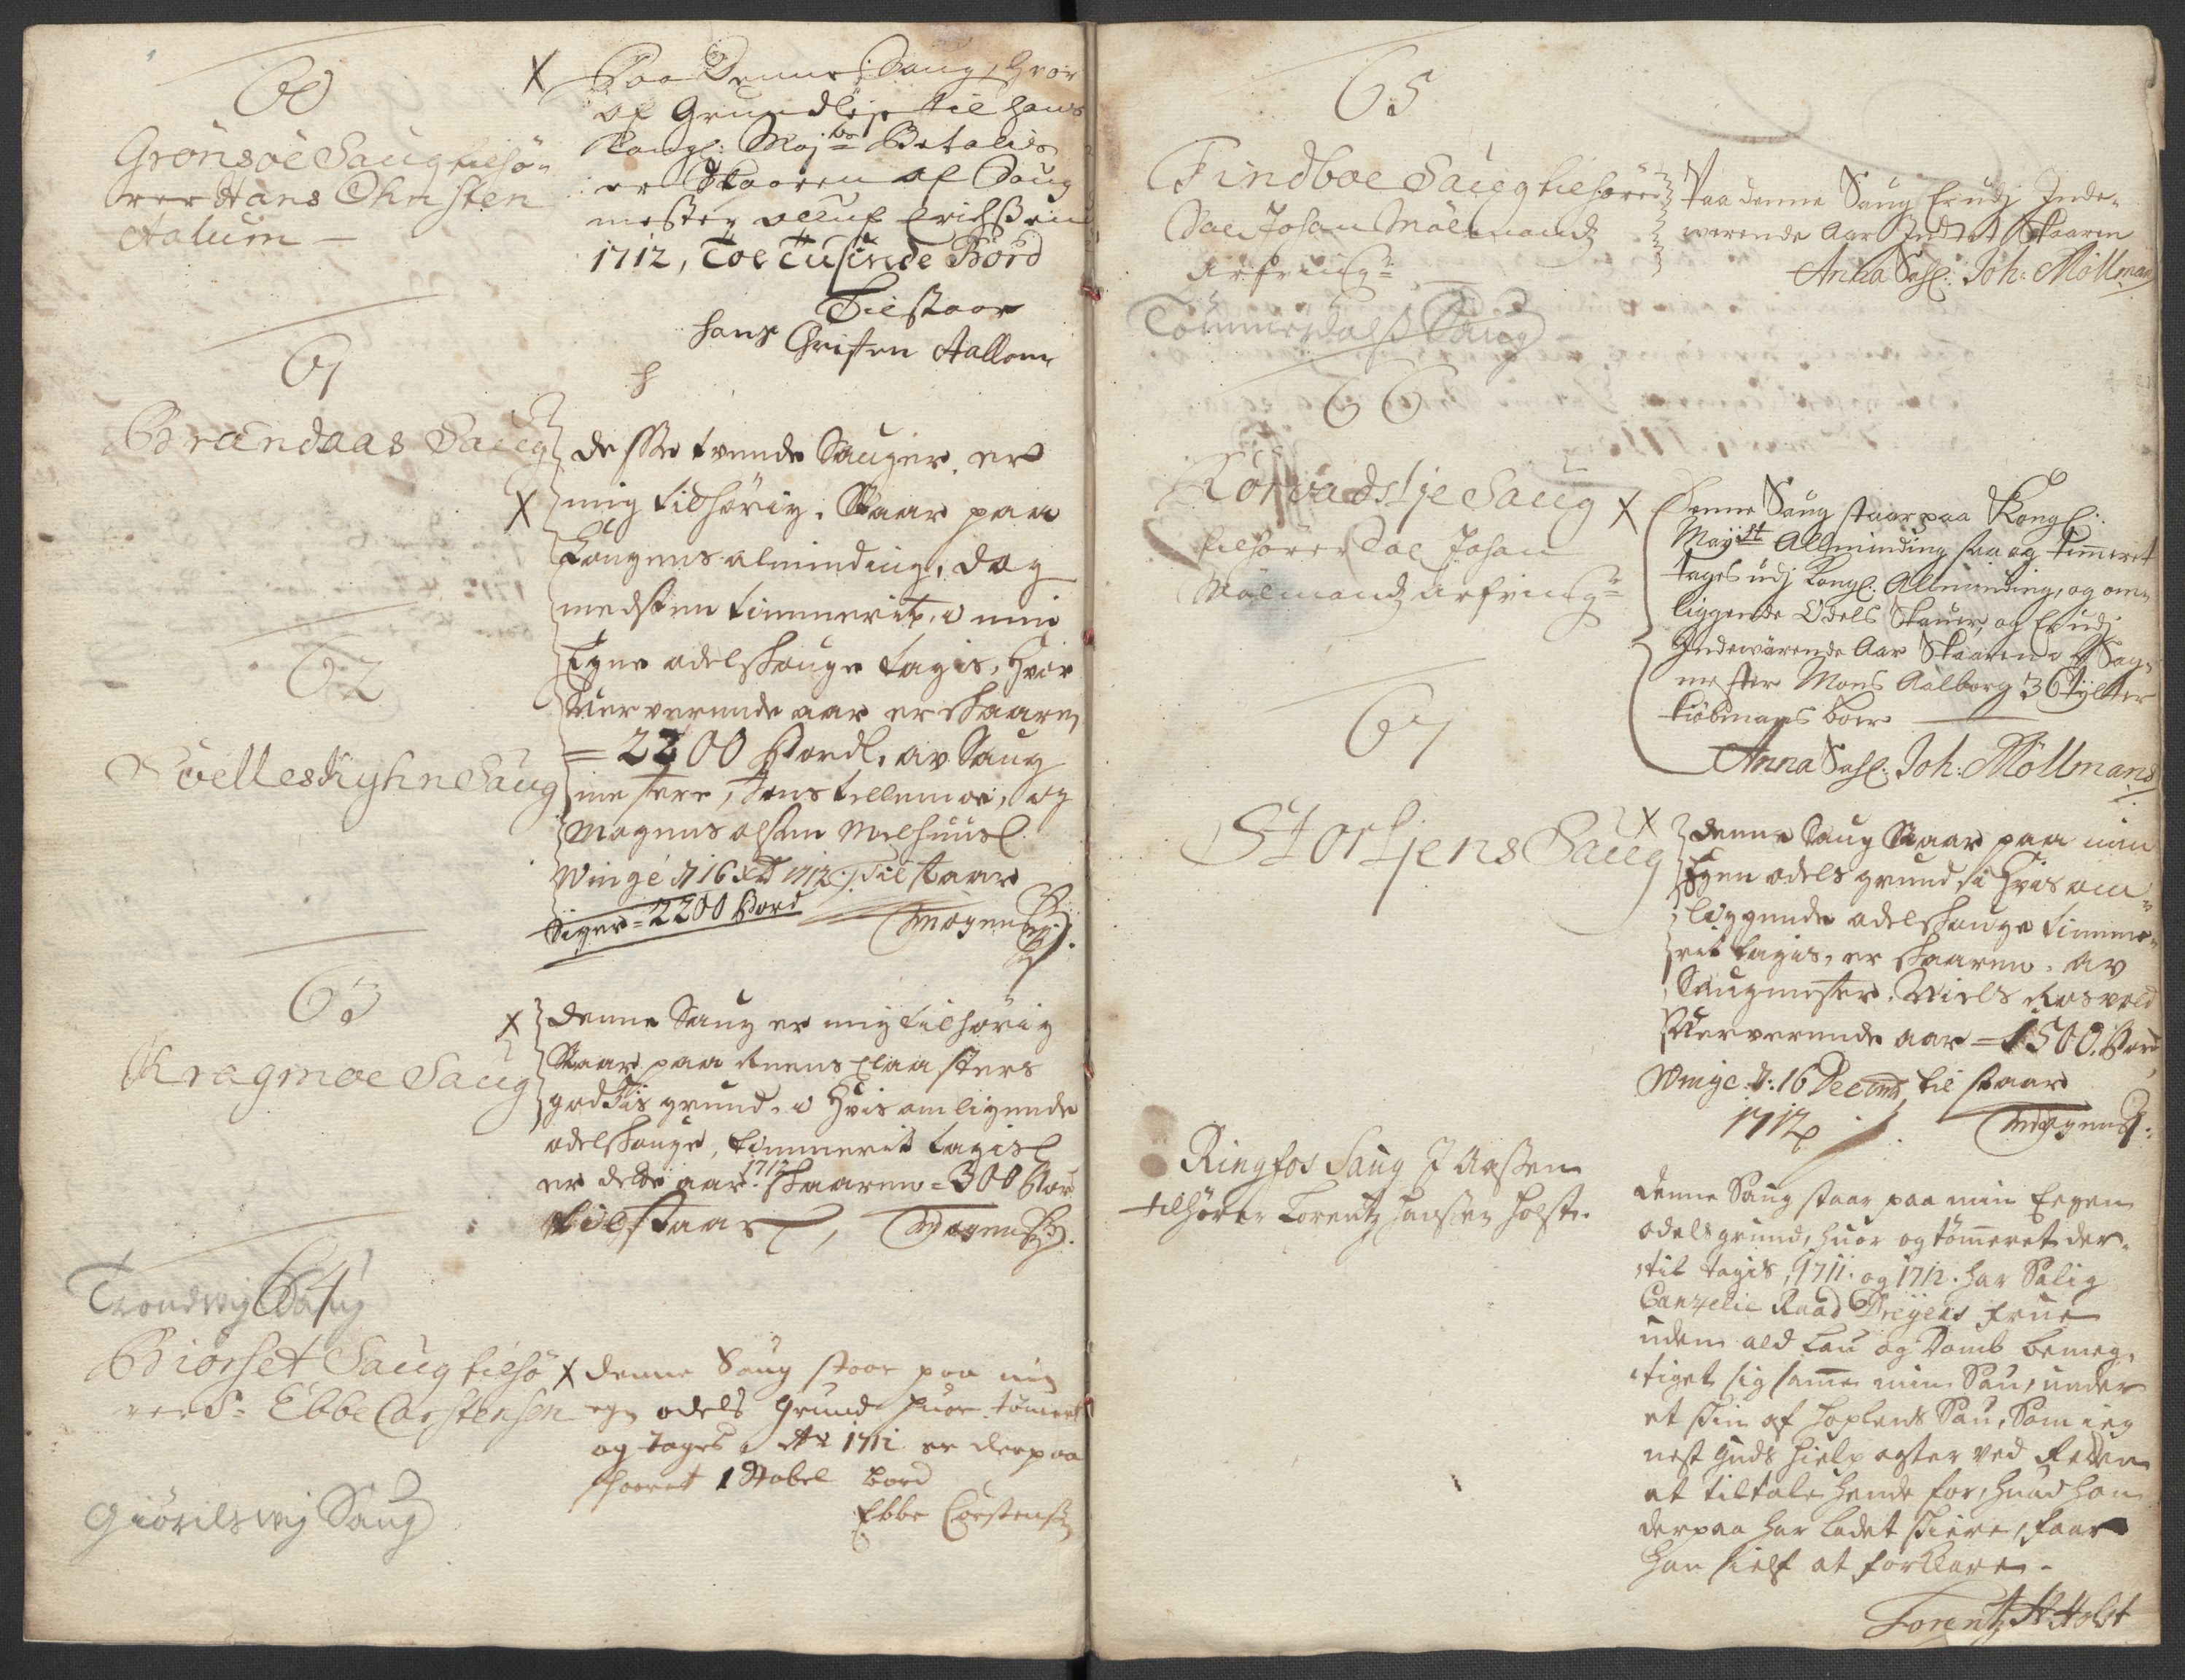 60
Grönsöe Saug tilhö-
rer Hans Christen
Aalum
X Paa Denne Saug, hvor
af Grundleje til hans
Kongl: Maj:ts Betales
er Skaaren af Saug
mester Olluf Erichsen
1712, Toe Tusinde Bord
Tilstaar
Hans Christen Aallom
61
Brandaas Saug
X
desse tvende Sauger er
mig tilhørig. Staar paa
Kongens alminding, dog
medsten timmerit i min
Egne odelskouge tagis, Hvor
verende aar er skaaren
= 2200 Bord. av Saug
mestere, Jens Lillemoe, og
Mogens olsen Melhuus
Winge d 16 Xb 1712 Tilstaar
Siger = 2200 Bord
Mogens
62
Svellesdighne Saug
63
Kragmoe Saug
X denne Saug er mig tilhørig
Staar paa Reens Claasters
godtzis grund. i Hvis omligende
odelskouge, timmerit tagis
er dette aar 1712 skaaren = 300 Bord
tilstaar, Mogens
64
Trondwig Saug
Biörset Saug tilhö-
rer Sr Ebbe Carstensen
X denne Saug staar paa min
egn odels Grund huor tömeret
og tages. Ao 1712 er derpaa
skaaret 1 Stabel bord
Ebbe Carstens
Giörilswig Saug
65
Findboe Saug tilhörer
Sal Johan Mölmands
Arfving
Paa denne Saug Er udj Inde-
werende Aar Intet Skaaren
Anna Sahl: Joh: Möllman
Tömmerdals Saug
66
Korsvadslje Saug
tilhörer Sal Johan
Mölmands arfving
X Denne Saug staar paa Kongl:
Mayst Allminding saa og timeret
tages udj Kongl. Allminding, og om-
liggende Odels Skauer, og Er udj
Indewärende Aar Skaaren af Saug-
mester Mons Aalborg 36 Tylter
kiöbmans bord
Anna Sahl: Joh: Möllmans
67
Stor Ljens Saug
X denne Saug Staar paa min
Egen odels grund, i Hvis om-
liggende odelskouge timme-
rit tagis, er skaaren. av
Saugmester. Niels Rosvold
verende aar = 1500. Bord,
Winge d: 16 Decemb, tilstaar
1712 Mogens
Ringfos Saug J Aassen
tilhörer Lorentz Hanssen Holst.
denne Saug staar paa min Eegen
odels grund, huor og tömeret der-
til tagis, 1711. og 1712. har Salig
Canzelie Raad Dreyers Frue
uden ald Lau og Domb bemeg-
tiget sig samme min Sau, under
et skin af Hoplens Sau, Som ieg
nest Guds Hielp agter ved Retten
at tiltale hende for, huad hon
derpaa har ladet skiere, faar
hon sielf at forklare.
Lorentz H Holst